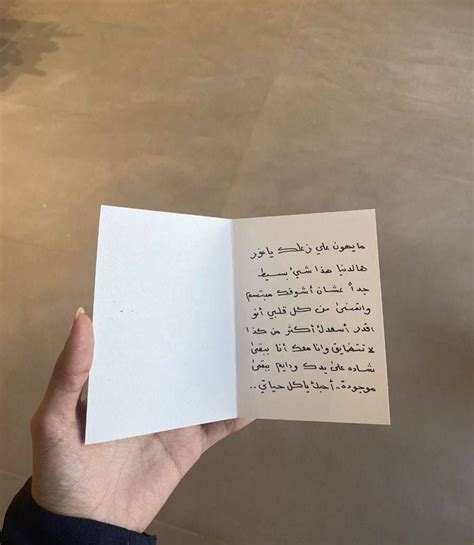 ما يهون علي زعلك يا نور
هالدنيا هذا شيء بسيط
جداً عشان أشوفك مبتسم
واتمنى من كل قلبي أنو
اقدر أسعدك أكثر من كذا
لا تتضايق وانا معك أنا ببقى
شاده على يدك ودايم ببقى
موجودة.. أحبك يا كل حياتي..